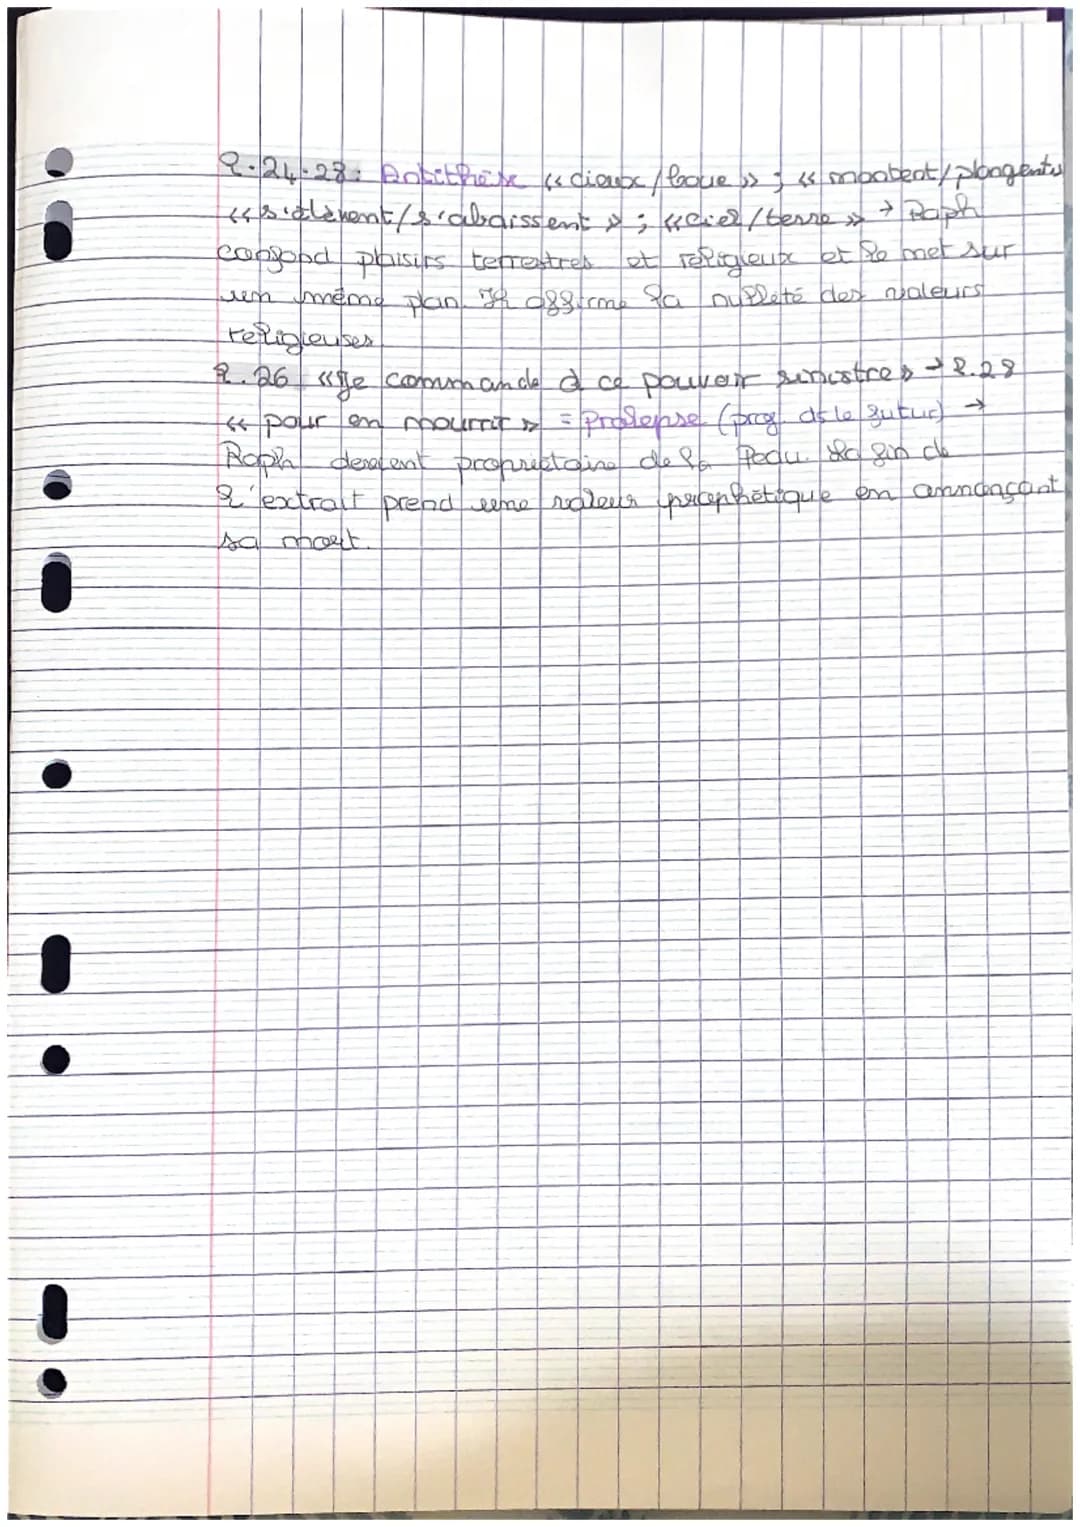 l.24-28: Antithèse « cieux/boue » ; « montent/plongent »
« s'élèvent/s'abaissent » ; « ciel/terre » → Raph
confond plaisirs terrestres et religieux et le met sur
un même plan. Il affirme la nulleté des valeurs
religieuses
l.26 « Je commande à ce pouvoir sinistre » → l.28
« pour en mourrir » = Prolepse (proj. ds le futur) →
Raph devient propriétaire de la Peau. La fin de
l'extrait prend une valeur prophétique en annonçant
sa mort.